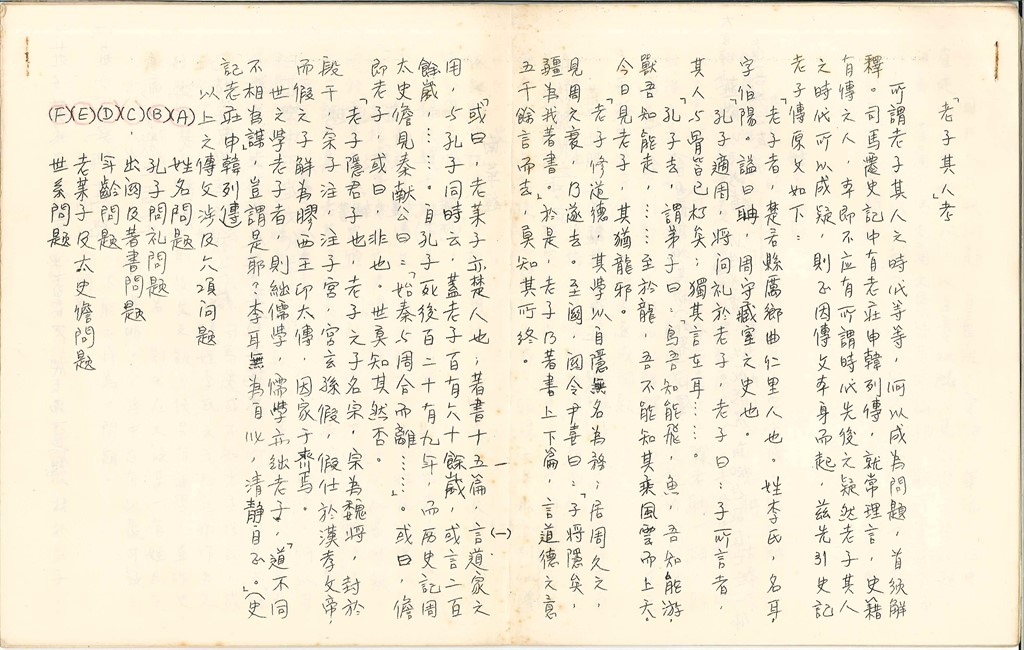 「老子其人」考
所謂老子其人之時代等等，何以成為問題，首須解
釋。司馬遷史記中有老莊申韓列傳，就常理言，史籍
有傳之人，本即不應有所謂時代先後之疑然老子其人
之時代所以成疑，則正因傳文本身而起，茲先引史記
老子傳原文如下：
「老子者，楚苦縣厲鄉曲仁里人也。姓李氏，名耳，
字伯陽。謚曰聃，周守藏室之史也。
「孔子適周，將问礼於老子，老子曰：子所言者，
其人与骨皆已朽矣；獨其言在耳……
「孔子去，謂弟子曰：「鳥吾知能飛，魚，吾知能游，
獸吾知能走，……至於龍，吾不能知其乘風雲而上天。
今日見老子，其猶龍邪。
「老子修道德，其學以自隱無名為務；居周久之，
見周之衰，乃遂去。至關，關令尹喜曰：「子將隱矣，
彊為我著書。」於是，老子乃著書上下篇，言道德之意
五千餘言而去，莫知其所終。
一
(一)
「或曰，老莱子亦楚人也；著書十五篇，言道家之
用，与孔子同時云，蓋老子百有六十餘嵗，或言二百
餘嵗，……。自孔子死後百二十有九年，而历史記周
太史儋見秦献公曰：「始秦与周合而離……」。或曰，儋
即老子，或曰非也。世莫知其然否。
「老子隱君子也，老子之子名宗，宗為魏將，封於
段干，宗子注，注子宮，宮玄孫假，假仕於漢孝文帝，
而假之子解為膠西王卬太傅，因家于齊焉。
「世之學老子者，則絀儒學，儒學亦絀老子，「道不同
不相為謀，豈謂是耶？李耳無為自以，清静自正。」（史
記老莊申韓列傳
以上之傳文涉及六項问题
(A)姓名問題
(B)孔子問礼問题
(C)出關及著書問题
(D)年齡問题
(E)老莱子及太史儋問题
(F)世系問题